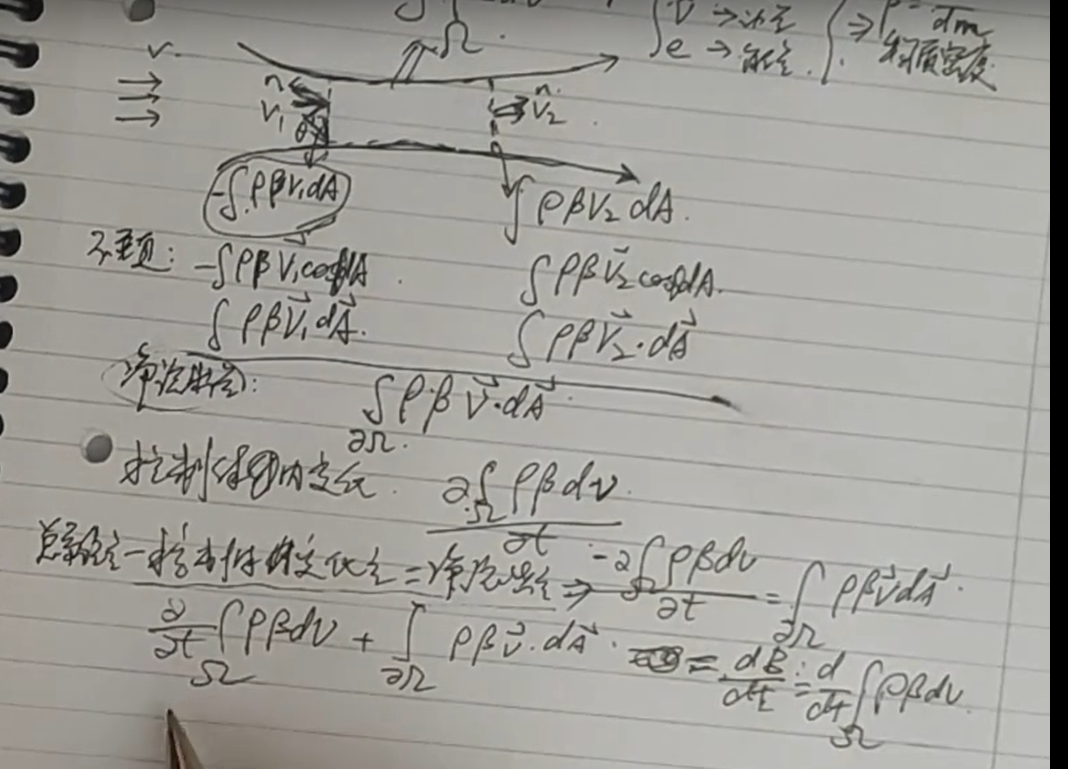 Ω.
v → 动量
e → 能量
⇒ ρ = dm
物质密度
v
n
V₁
n
V₂
-∫ρβV₁dA
∫ρβV₂dA.
不垂直: -∫ρβV⃗₁cosθdA
∫ρβV⃗₂cosθdA.
∫ρβV⃗₁dA⃗.
∫ρβV⃗₂·dA⃗
净流出量:
∫_∂Ω ρβV⃗·dA⃗
控制体内变化. ∂∫_Ω ρβdv / ∂t
-控制体内变化量 = 净流出量 ⇒ -∂∫_Ω ρβdv / ∂t = ∫_∂Ω ρβV⃗dA⃗.
∂/∂t ∫_Ω ρβdv + ∫_∂Ω ρβv⃗·dA⃗. = dB/dt = d/dt ∫_Ω ρβdv.